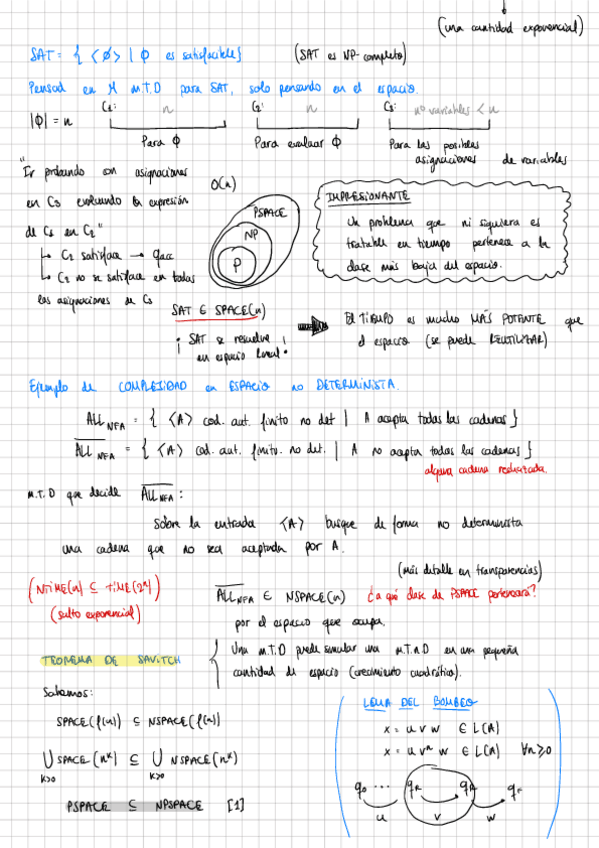 (una cantidad exponencial)
SAT = { <Ø> | Φ es satisfacible} (SAT es NP-completo)
Pensad en M M.T.D para SAT, solo pensando en el espacio.
C1: n C2: n C3: nº variables < n
|Φ| = n
Para Φ Para evaluar Φ Para las posibles
asignaciones de variables
"Ir probando con asignaciones
en C3 evaluando la expresión
de C1 en C2"
↳ C2 satisface → qacc
↳ C2 no se satisface en todas
las asignaciones de C3
O(n)
PSPACE
NP
P
IMPRESIONANTE
Un problema que ni siquiera es
tratable en tiempo pertenece a la
clase más baja del espacio.
SAT ∈ SPACE(n)
¡ SAT se resuelve !
en espacio lineal
El TIEMPO es mucho MÁS POTENTE que
el espacio (se puede REUTILIZAR)
Ejemplo de COMPLEJIDAD en ESPACIO no DETERMINISTA.
ALL NFA = { <A> cod. aut. finito no det | A acepta todas las cadenas }
ALL NFA = { <A> cod. aut. finito. no det. | A no acepta todas las cadenas }
alguna cadena rechazada.
M.T.D que decide ALL NFA :
Sobre la entrada <A> busque de forma no determinista
una cadena que no sea aceptada por A.
(más detalle en transparencias)
(NTIME(n) ⊆ TIME(2ⁿ))
(salto exponencial)
ALL NFA ∈ NSPACE(n) ¿a qué clase de PSPACE pertenecerá?
por el espacio que ocupa.
TEOREMA DE SAVITCH
Una M.T.D puede simular una M.T.N.D en una pequeña
cantidad de espacio (crecimiento cuadrático).
Sabemos:
SPACE(f(n)) ⊆ NSPACE(f(n))
⋃ SPACE(nᵏ) ⊆ ⋃ NSPACE(nᵏ)
k>0 k>0
PSPACE ⊆ NPSPACE [1]
LEMA DEL BOMBEO
x = u v w ∈ L(A)
x = u vⁿ w ∈ L(A) ∀n≥0
q0 ... qk qk qf
u v w